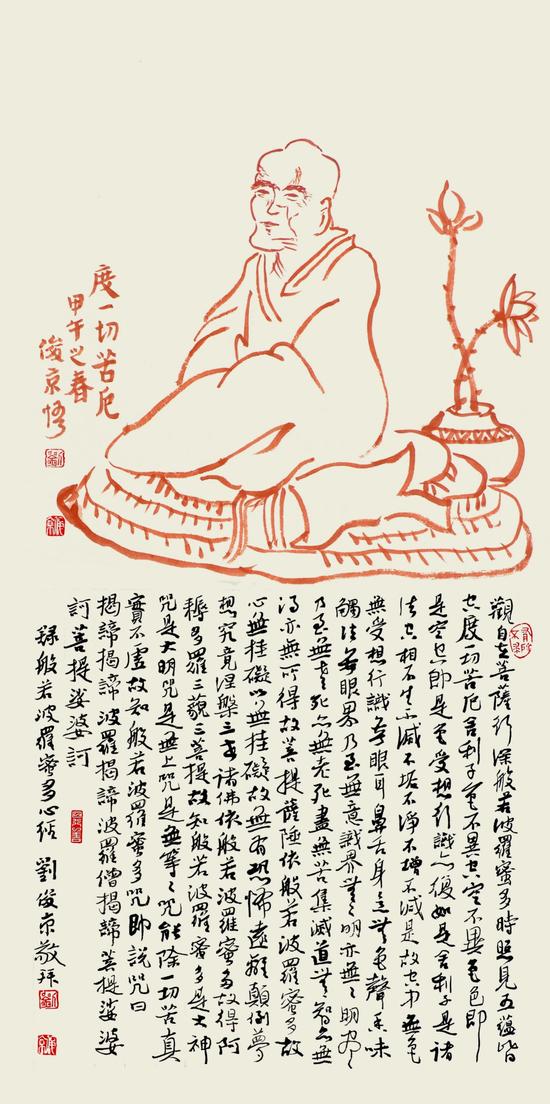 度一切苦厄
甲午之春
俊京悟
觀自在菩薩行深般若波羅蜜多時照見五蘊皆
空度一切苦厄舍利子色不異空空不異色色即
是空空即是色受想行識亦復如是舍利子是諸
法空相不生不滅不垢不淨不增不減是故空中無色
無受想行識無眼耳鼻舌身意無色聲香味
觸法無眼界乃至無意識界無々明亦無々明盡
乃至無老死亦無老死盡無苦集滅道無智亦無
得亦無可得故菩提薩陲依般若波羅蜜多故
心無挂礙以無挂礙故無有恐怖遠離顛倒夢
想究竟涅槃三世諸佛依般若波羅蜜多故得阿
耨多羅三藐三菩提故知般若波羅蜜多是大神
咒是大明咒是無上咒是無等々咒能除一切苦真
實不虛故知般若波羅蜜多咒即說咒曰
揭諦揭諦波羅揭諦波羅僧揭諦菩提娑婆
訶菩提娑婆訶
錄般若波羅蜜多心經 劉俊京敬拜